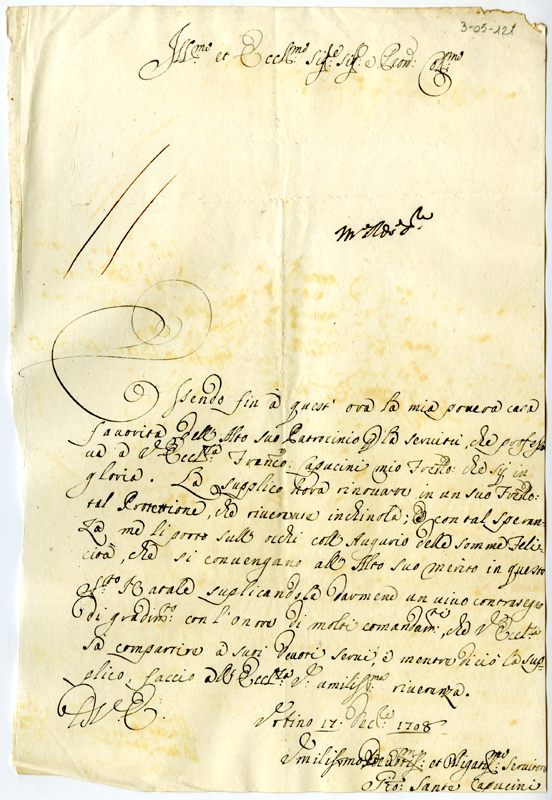 3-05-121
Ill.mo et Eccll.mo Sig.re Sig.re e Pron. Col.mo
Essendo fin à quest' ora la mia povera casa
favorita dell'Alto suo Patrocinio p la servitù, che profess
va à V. Eccll.za Franco: Capucini mio Frello: che sij in
gloria. La supplico hora rinovare in un suo Frello:
tal Protettione, che riverente inchinola; E con tal speran
za me li porto sull' ochi coll' Augurio delle somme Feli
cità, che si convengano all' Alto suo merito in questo
S.to Natale suplicandola darmene un vivo contrasegno
di gradim.to con l'onore di molti comandam.ti, che V. Eccll.za
sà compartire a suoi devoti servi, e mentre di ciò la sup
plico, faccio a V. Eccll.za um.a riverenza.
D V. E.
17 Dec.re 1708
Umilissimo Devotis.mo et Obligatis.mo Servitore
Sante Capucini